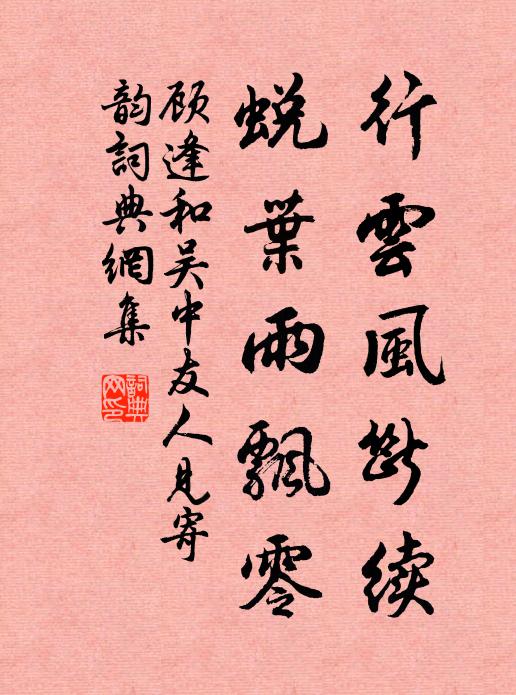 行雲風斷續
蜕葉雨飄零
顾逢和吴中友人見寄
韵詞典網集
詞典网印